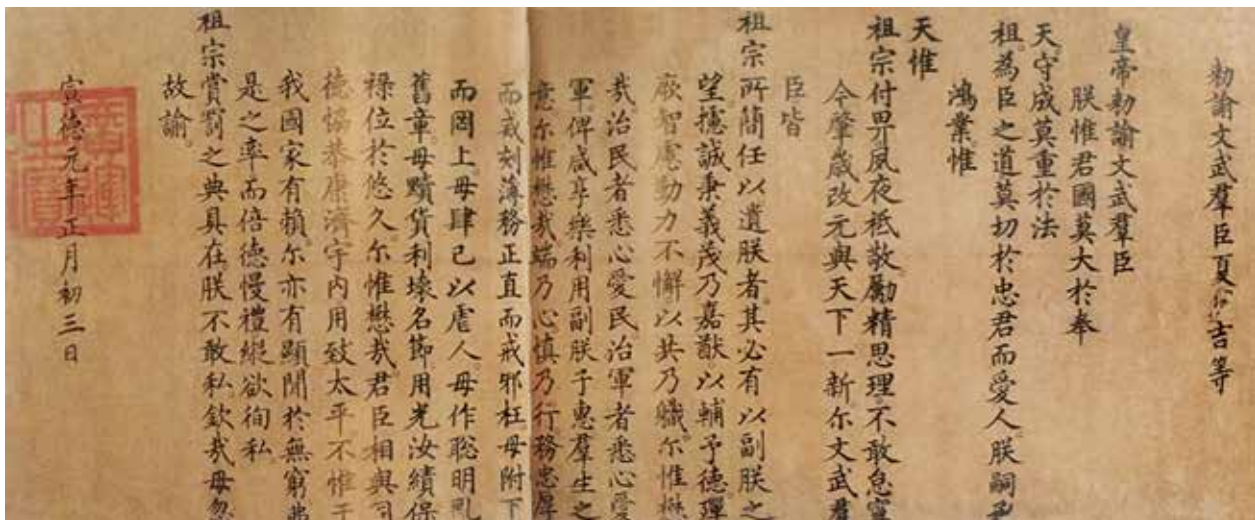 勅諭文武羣臣夏原吉等
皇帝勅諭文武羣臣
朕惟君國莫大於奉
天守成莫重於法
祖為臣之道莫切於忠君而愛人朕嗣
鴻業惟
天惟
祖宗付畀夙夜祗敬勵精思理不敢怠寧
今肇歲改元與天下一新尔文武羣
臣皆
祖宗所簡任以遺朕者其必有以副朕之
望攄誠秉義茂乃嘉猷以輔予德殫
厥智慮勤力不懈以共乃職尔惟懋
哉治民者悉心愛民治軍者悉心愛
軍俾咸享樂利用副朕子惠羣生之
意尔惟懋哉端乃心慎乃行務忠厚
而戒刻薄務正直而戒邪枉毋附下
而罔上毋肆己以虐人毋作聰明亂
舊章毋黷貨利壞名節用光汝績保
祿位於悠久尔惟懋哉君臣相與同
德協恭康濟宇内用致太平不惟
我國家有賴尔亦有顯聞於無窮
是之率而倍德慢禮縱欲徇私
祖宗賞罰之典具在朕不敢私欽哉毋忽
故諭
宣德元年正月初三日